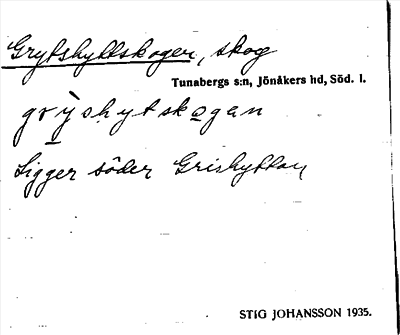 Grytshyttskogen, skog
Tunabergs s:n, Jönåkers hd, Söd. l.
grỳshytskogan
Ligger söder Grishyttan
STIG JOHANSSON 1935.